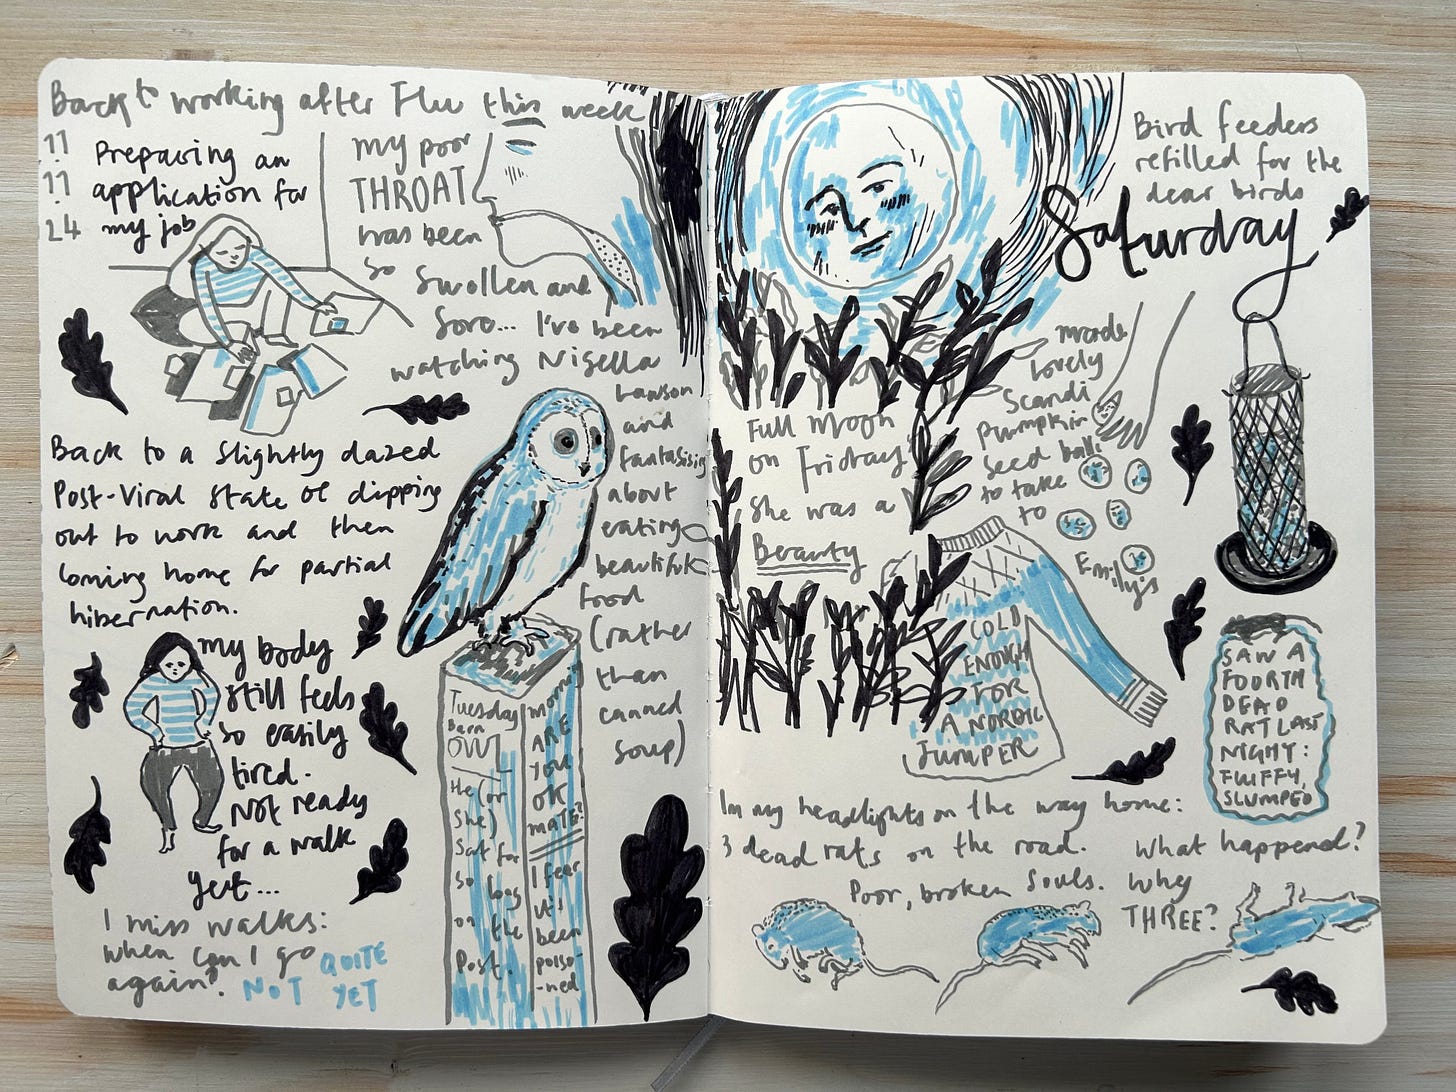 Back to working after Flu this week
11
11
24
Preparing an
application for
my job
my poor
THROAT
has been
so swollen and
sore... I've been
watching Nigella
Lawson
and
fantasising
about
eating
beautiful
food
(rather
than
canned
soup)
Back to a slightly dazed
Post-Viral state of dipping
out to work and then
coming home for partial
hibernation.
my body
still feels
so easily
tired.
Not ready
for a walk
yet...
I miss walks:
when can I go
again?
NOT QUITE
YET
Tuesday
Barn
OWL
He (or
she)
sat for
so long
on the
Post.
morning
ARE
YOU
OK
MATE?
I fear
it's
been
poiso-
-ned
Full moon
on Friday!
She was a
Beauty
Bird feeders
refilled for the
dear birds
Saturday
made
lovely
Scandi
Pumpkin
seed balls
to take
to
Emily's
COLD
ENOUGH
FOR
A NORDIC
JUMPER
SAW A
FOURTH
DEAD
RAT LAST
NIGHT:
FLUFFY,
SLUMPED
In my headlights on the way home:
3 dead rats on the road.
Poor, broken souls.
What happened?
Why
THREE?